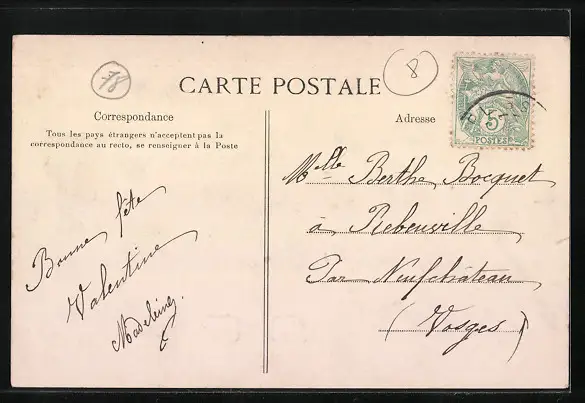 18
8
CARTE POSTALE
Correspondance
Tous les pays étrangers n'acceptent pas la
correspondance au recto, se renseigner à la Poste
Bonne fête
Valentine
Madeleine
Adresse
5
POSTES
Melle Berthe Bocquet
à Rebeuville
Par Neufchâteau
(Vosges)